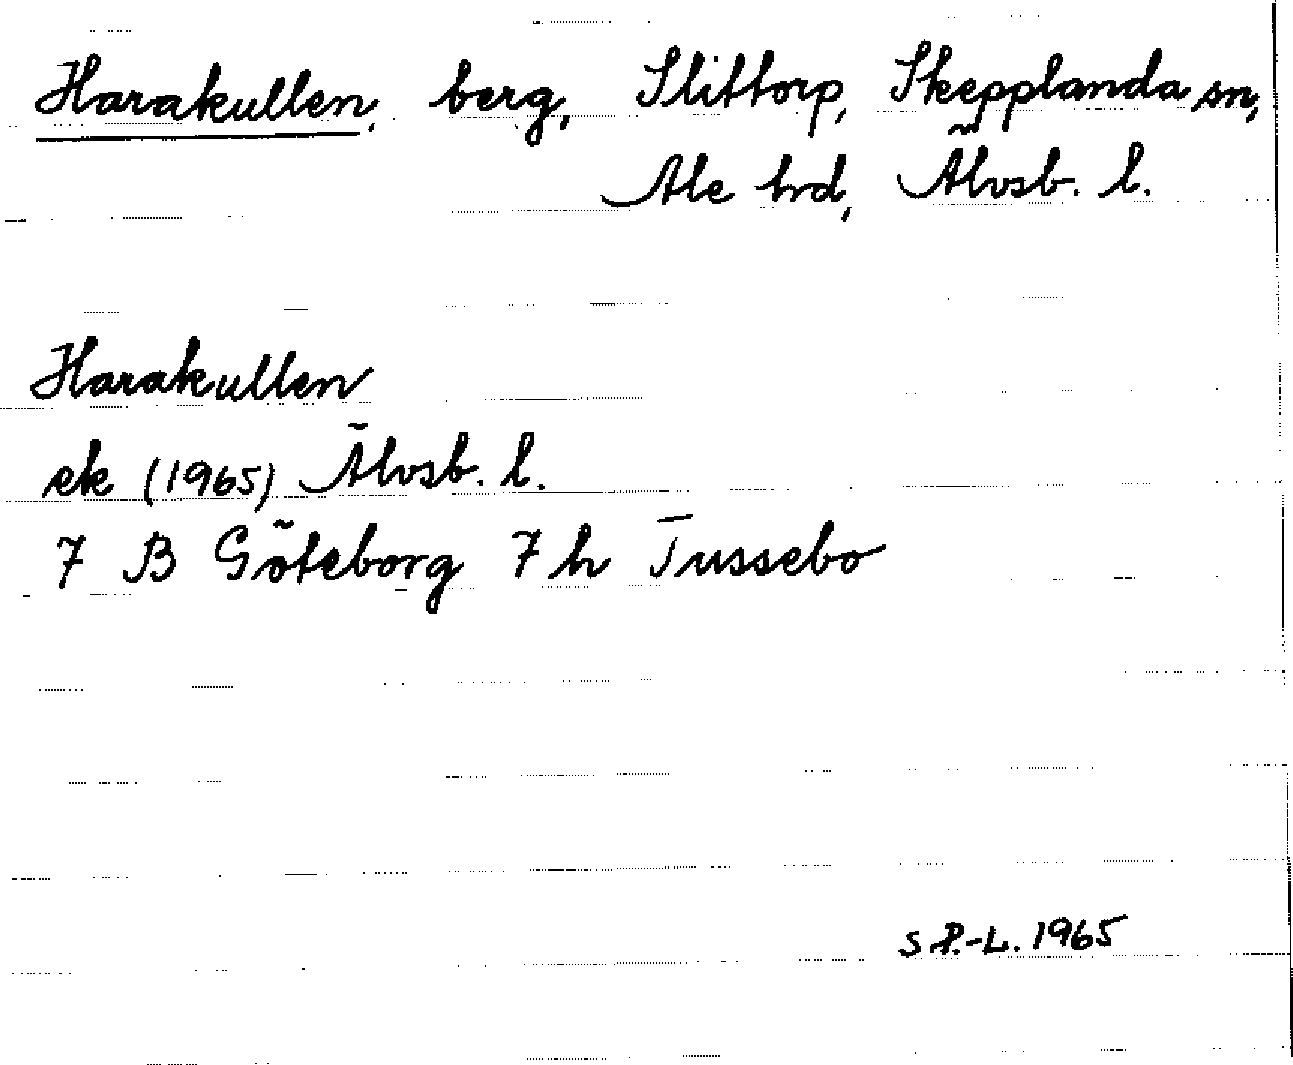 Harakullen, berg, Slittorp, Skepplanda sn,
Ale hrd, Älvsb. l.
Harakullen
ek (1965) Älvsb. l.
7 B Göteborg 7 h Tussebo
S P.-L. 1965